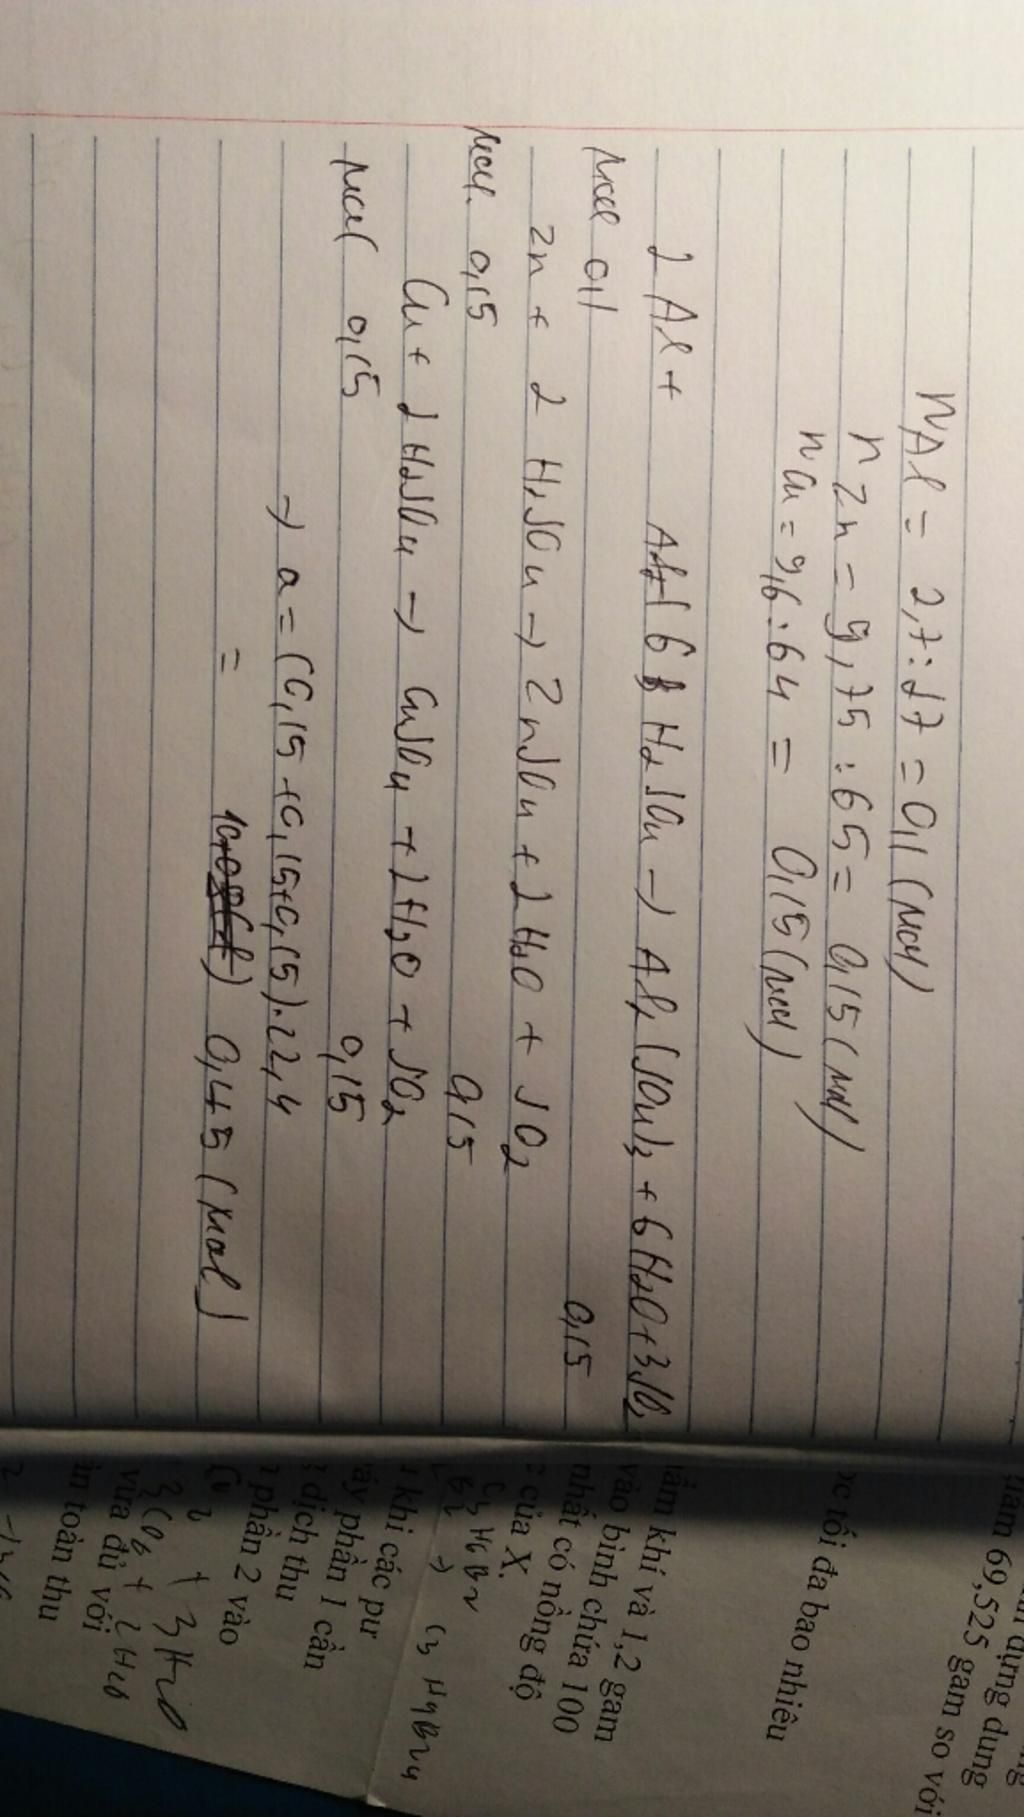 nAl = 2,7 : 27 = 0,1 (mol)
nZn = 9,75 : 65 = 0,15 (mol)
nCu = 9,6 : 64 = 0,15 (mol)
2Al + 6 H2SO4 → Al2(SO4)3 + 6H2O + 3SO2
mol 0,1 0,15
Zn + 2 H2SO4 → ZnSO4 + 2H2O + SO2
mol 0,15 0,15
Cu + 2H2SO4 → CuSO4 + 2H2O + SO2
mol 0,15 0,15
→ a = (0,15 + 0,15 + 0,15).22,4
= 0,45 (mol)
dựng dung
gam 69,525 gam so với
ợc tối đa bao nhiêu
ẩm khí và 1,2 gam
vào bình chứa 100
nhất có nồng độ
của X.
C3H6Br2 → C3H4Br4
khi các pư
ấy phần 1 cần
dịch thu
phần 2 vào
3CO2 + 3H2O
vừa đủ với
àn toàn thu